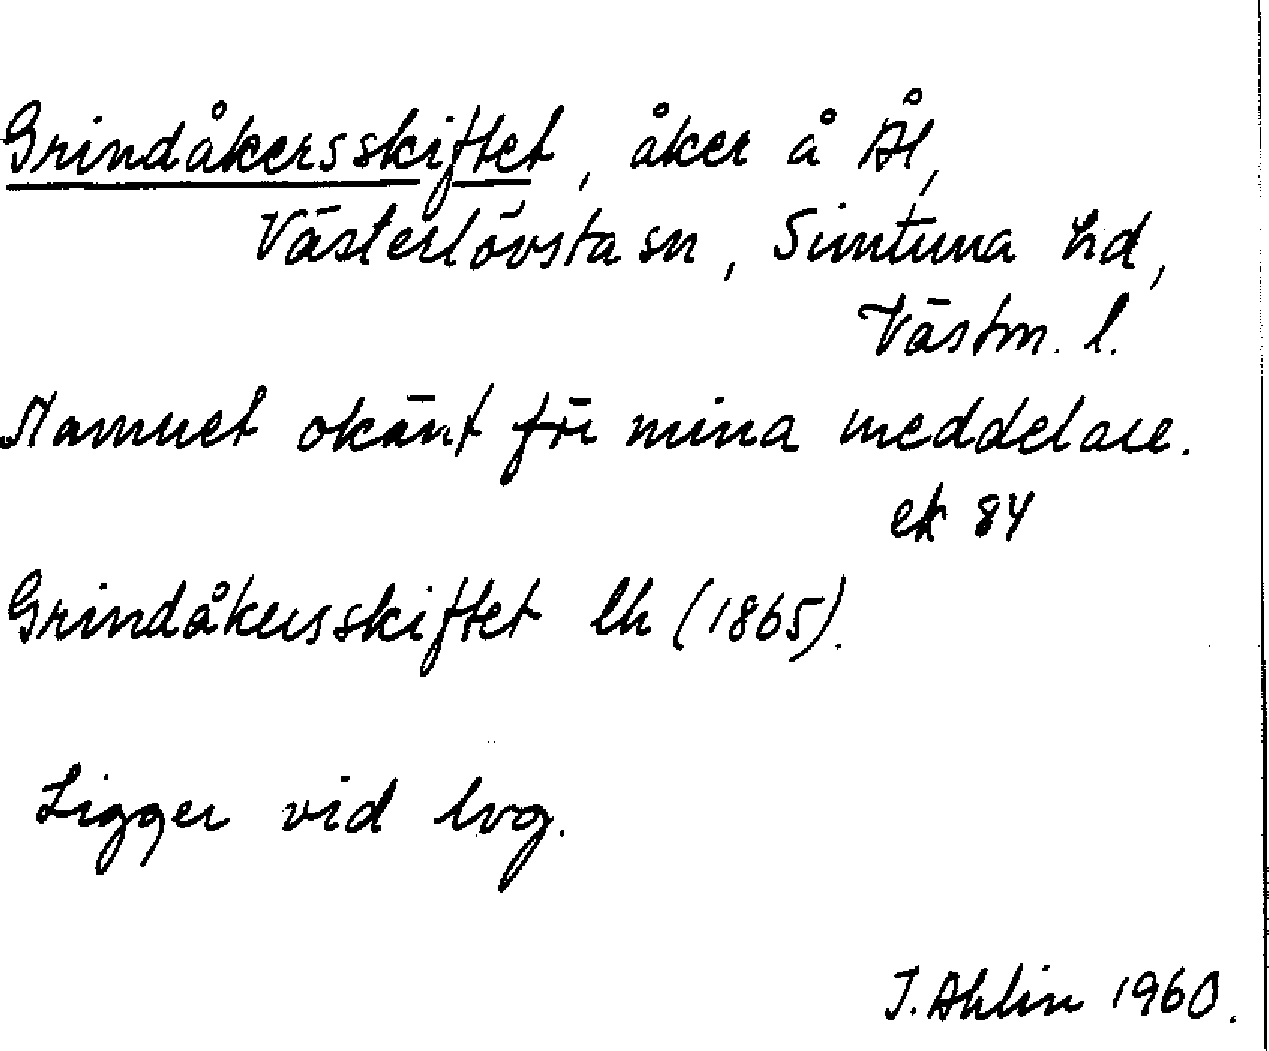 Grindåkersskiftet, åker å Ål,
Västerlövsta sn, Simtuna hd,
Västm. l.
Namnet okänt för mina meddelare.
ek 84
Grindåkersskiftet lh (1865).
Ligger vid lvg.
J. Ahlin 1960.